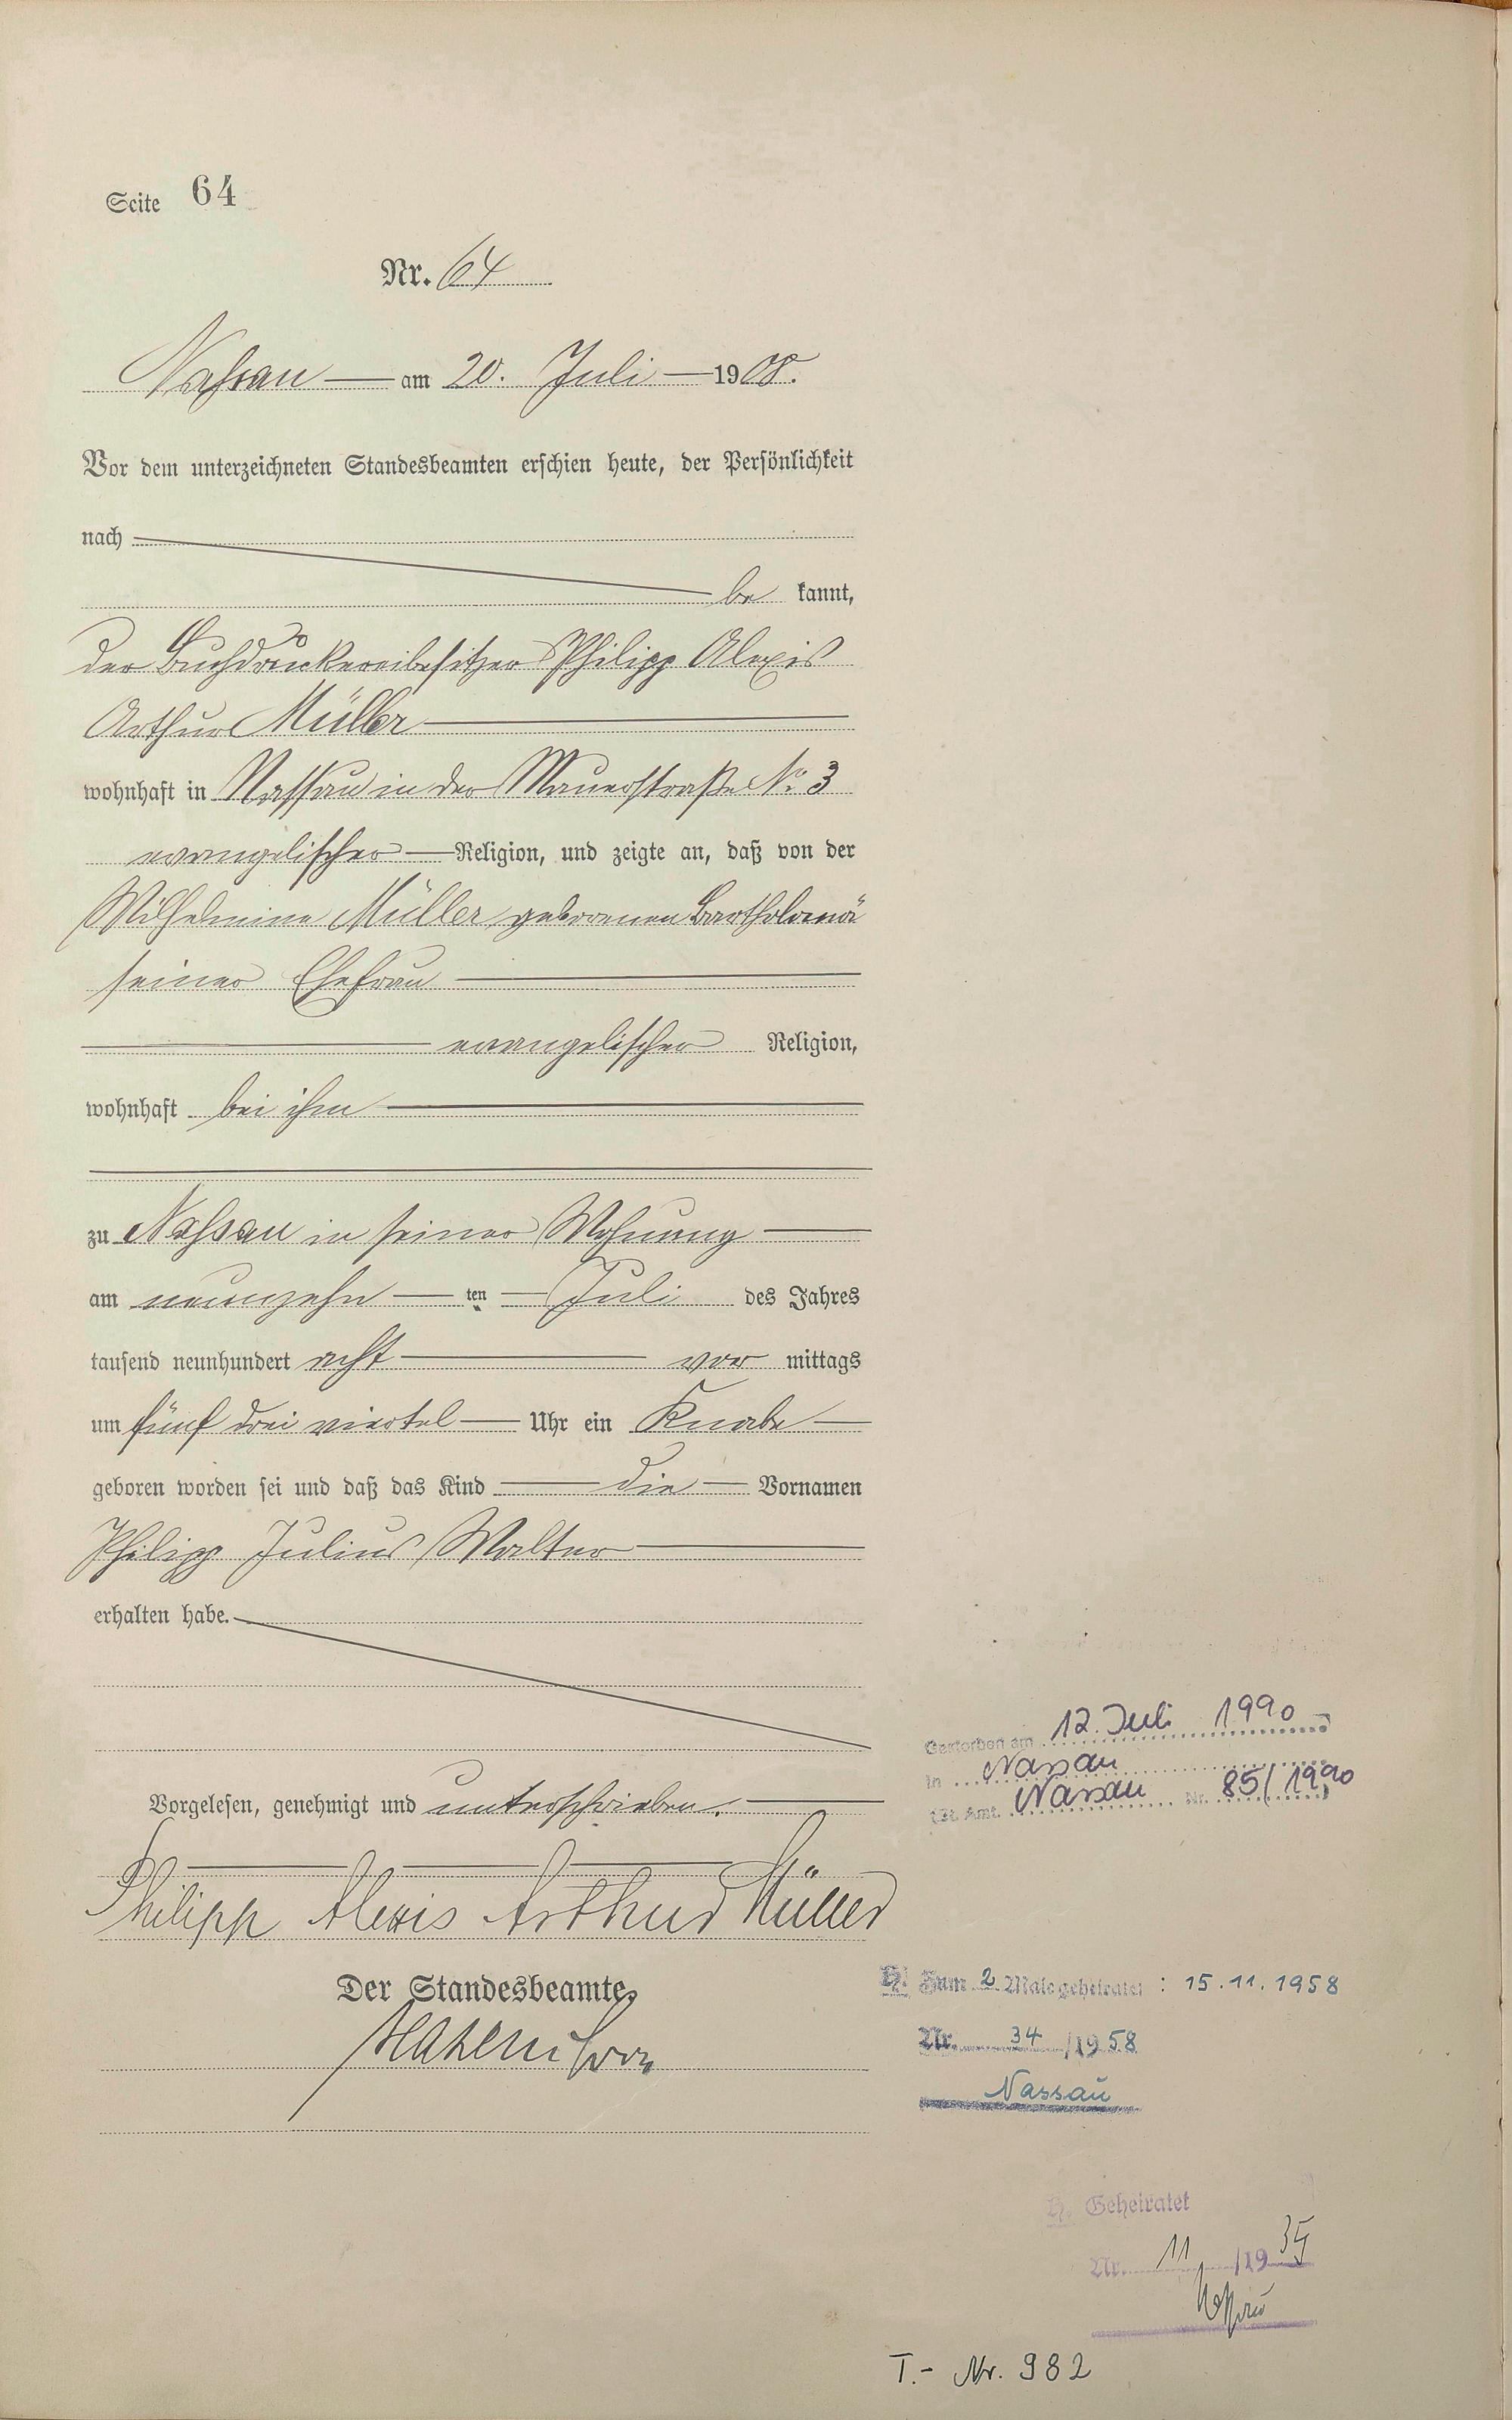 Seite 64
Nr. 64
Nassau am 20. Juli 1908.
Vor dem unterzeichneten Standesbeamten erschien heute, der Persönlichkeit
nach
be kannt,
der Buchdruckereibesitzer Philipp Alexis
Arthur Müller
wohnhaft in Nassau in der Mauerstraße No 3
evangelischer Religion, und zeigte an, daß von der
Wilhelmine Müller, geborenen Bartholomä
seiner Ehefrau
evangelischer Religion,
wohnhaft bei ihm
zu Nassau in seiner Wohnung
am neunzehn ten Juli des Jahres
tausend neunhundert acht vor mittags
um fünf drei viertel Uhr ein Knabe
geboren worden sei und daß das Kind die Vornamen
Philipp Julius Walter
erhalten habe.
Vorgelesen, genehmigt und unterschrieben.
Philipp Alexis Arthur Müller
Der Standesbeamte,
Gestorben am 12. Juli 1990
in Nassau
(St. Amt. Nassau Nr. 85/1990)
H. Zum 2. Male geheiratet: 15.11.1958
Nr. 34 /1958
Nassau
H. Geheiratet
Nr. 11 /1935
Nassau
T.- Nr. 982